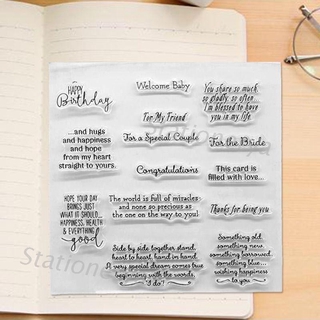 HAPPY
Birthday
Welcome Baby
You share so much
so gladly, so often...
I'm blessed to have
you in my life.
For My Friend
...and hugs
and happiness
and hope
from my heart
straight to yours.
For a Special Couple
For the Bride
Congratulations
This card is
filled with love...
HOPE YOUR DAY
BRINGS JUST
WHAT IT SHOULD...
HAPPINESS, HEALTH
& EVERYTHING
good
The world is full of miracles
and none so precious as
the one on the way to you!
Thanks for being you
Side by side together stand,
heart to heart, hand in hand.
A very special dream comes true
beginning with the words,
"I do"!
Something old,
something new,
something borrowed,
something blue...
wishing happiness
to you
Station